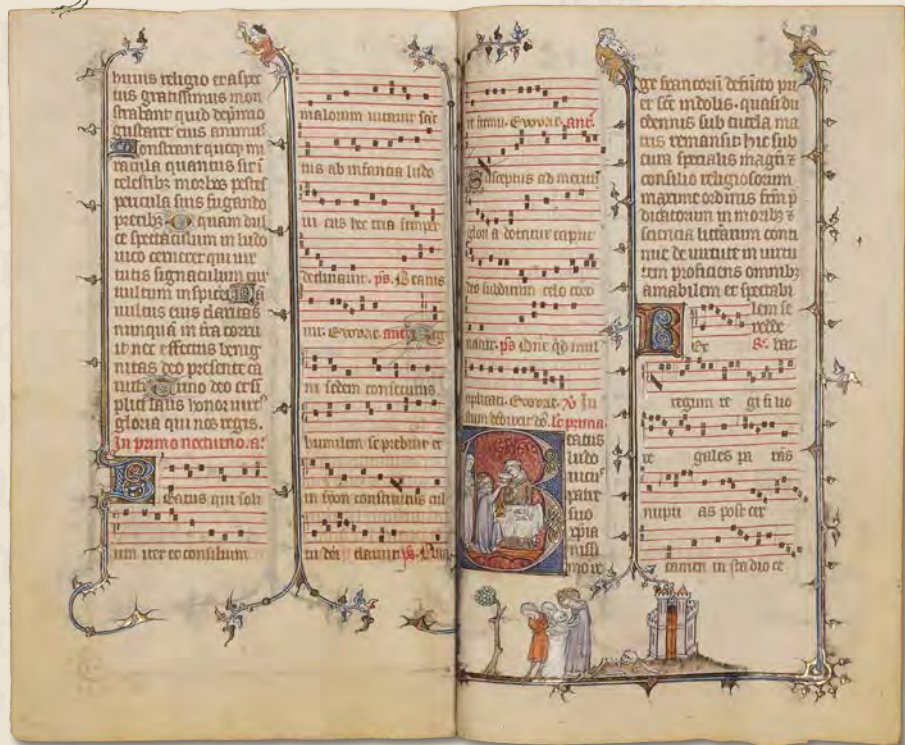 huius religio et aspec
tus gratissimus mon
strabant quid
gustaret eius animus
Monstrant quoque mi
racula quantus sit i
celestibz morbos pestes
pericula suis fugando
precibz O quam dul
ce spectaculum in ludo
uico cernere qui uir
tutis signaculum cui
uultum inspicere Na
uultus eius claritas
nunquã in ira corru
it nec effectus benig
nitas deo presente
Trino deo et si
plici laus honor uirtus
gloria qui nos regis.
In primo nocturno. a.
Beatus qui soli
um iter et consilium
malorum uitauit sanc
tus ab infancia ludo
uicus hec tria semper
declinauit. ps. Beatus
uir. Evovae. ant. Reg
ni sedem consecutus
humilem se prebuit et
in syon constitutus cul
tu dei claruit ps. Quare
fremu. Evovae. ant.
Susceptus ad meritum
gloria dotatur caput
deo subditum celo coro
natur. ps Dñe qd mul
tiplicati. Evovae. V Ius
tum deduxit dõ. lc prima.
Beatus
ludo
uicus
patre
suo
xpia
nissi
mo re
ge francorũ defuncto pu
er sẽẽ indolis. quasi du
odennis sub tutela ma
tris remansit hic sub
cura specialis magistri &
consilio religiosorum
maxime ordinis frm p
dicatorum in moribz &
sciencia litterarum conti
nue de uirtute in uirtu
tem proficiens omnibz
amabilem et spectabi
lem se
redde
Rex bat.
regum re gi filio
re gales pa rans
nupti as post cer
tamen in stadio ce